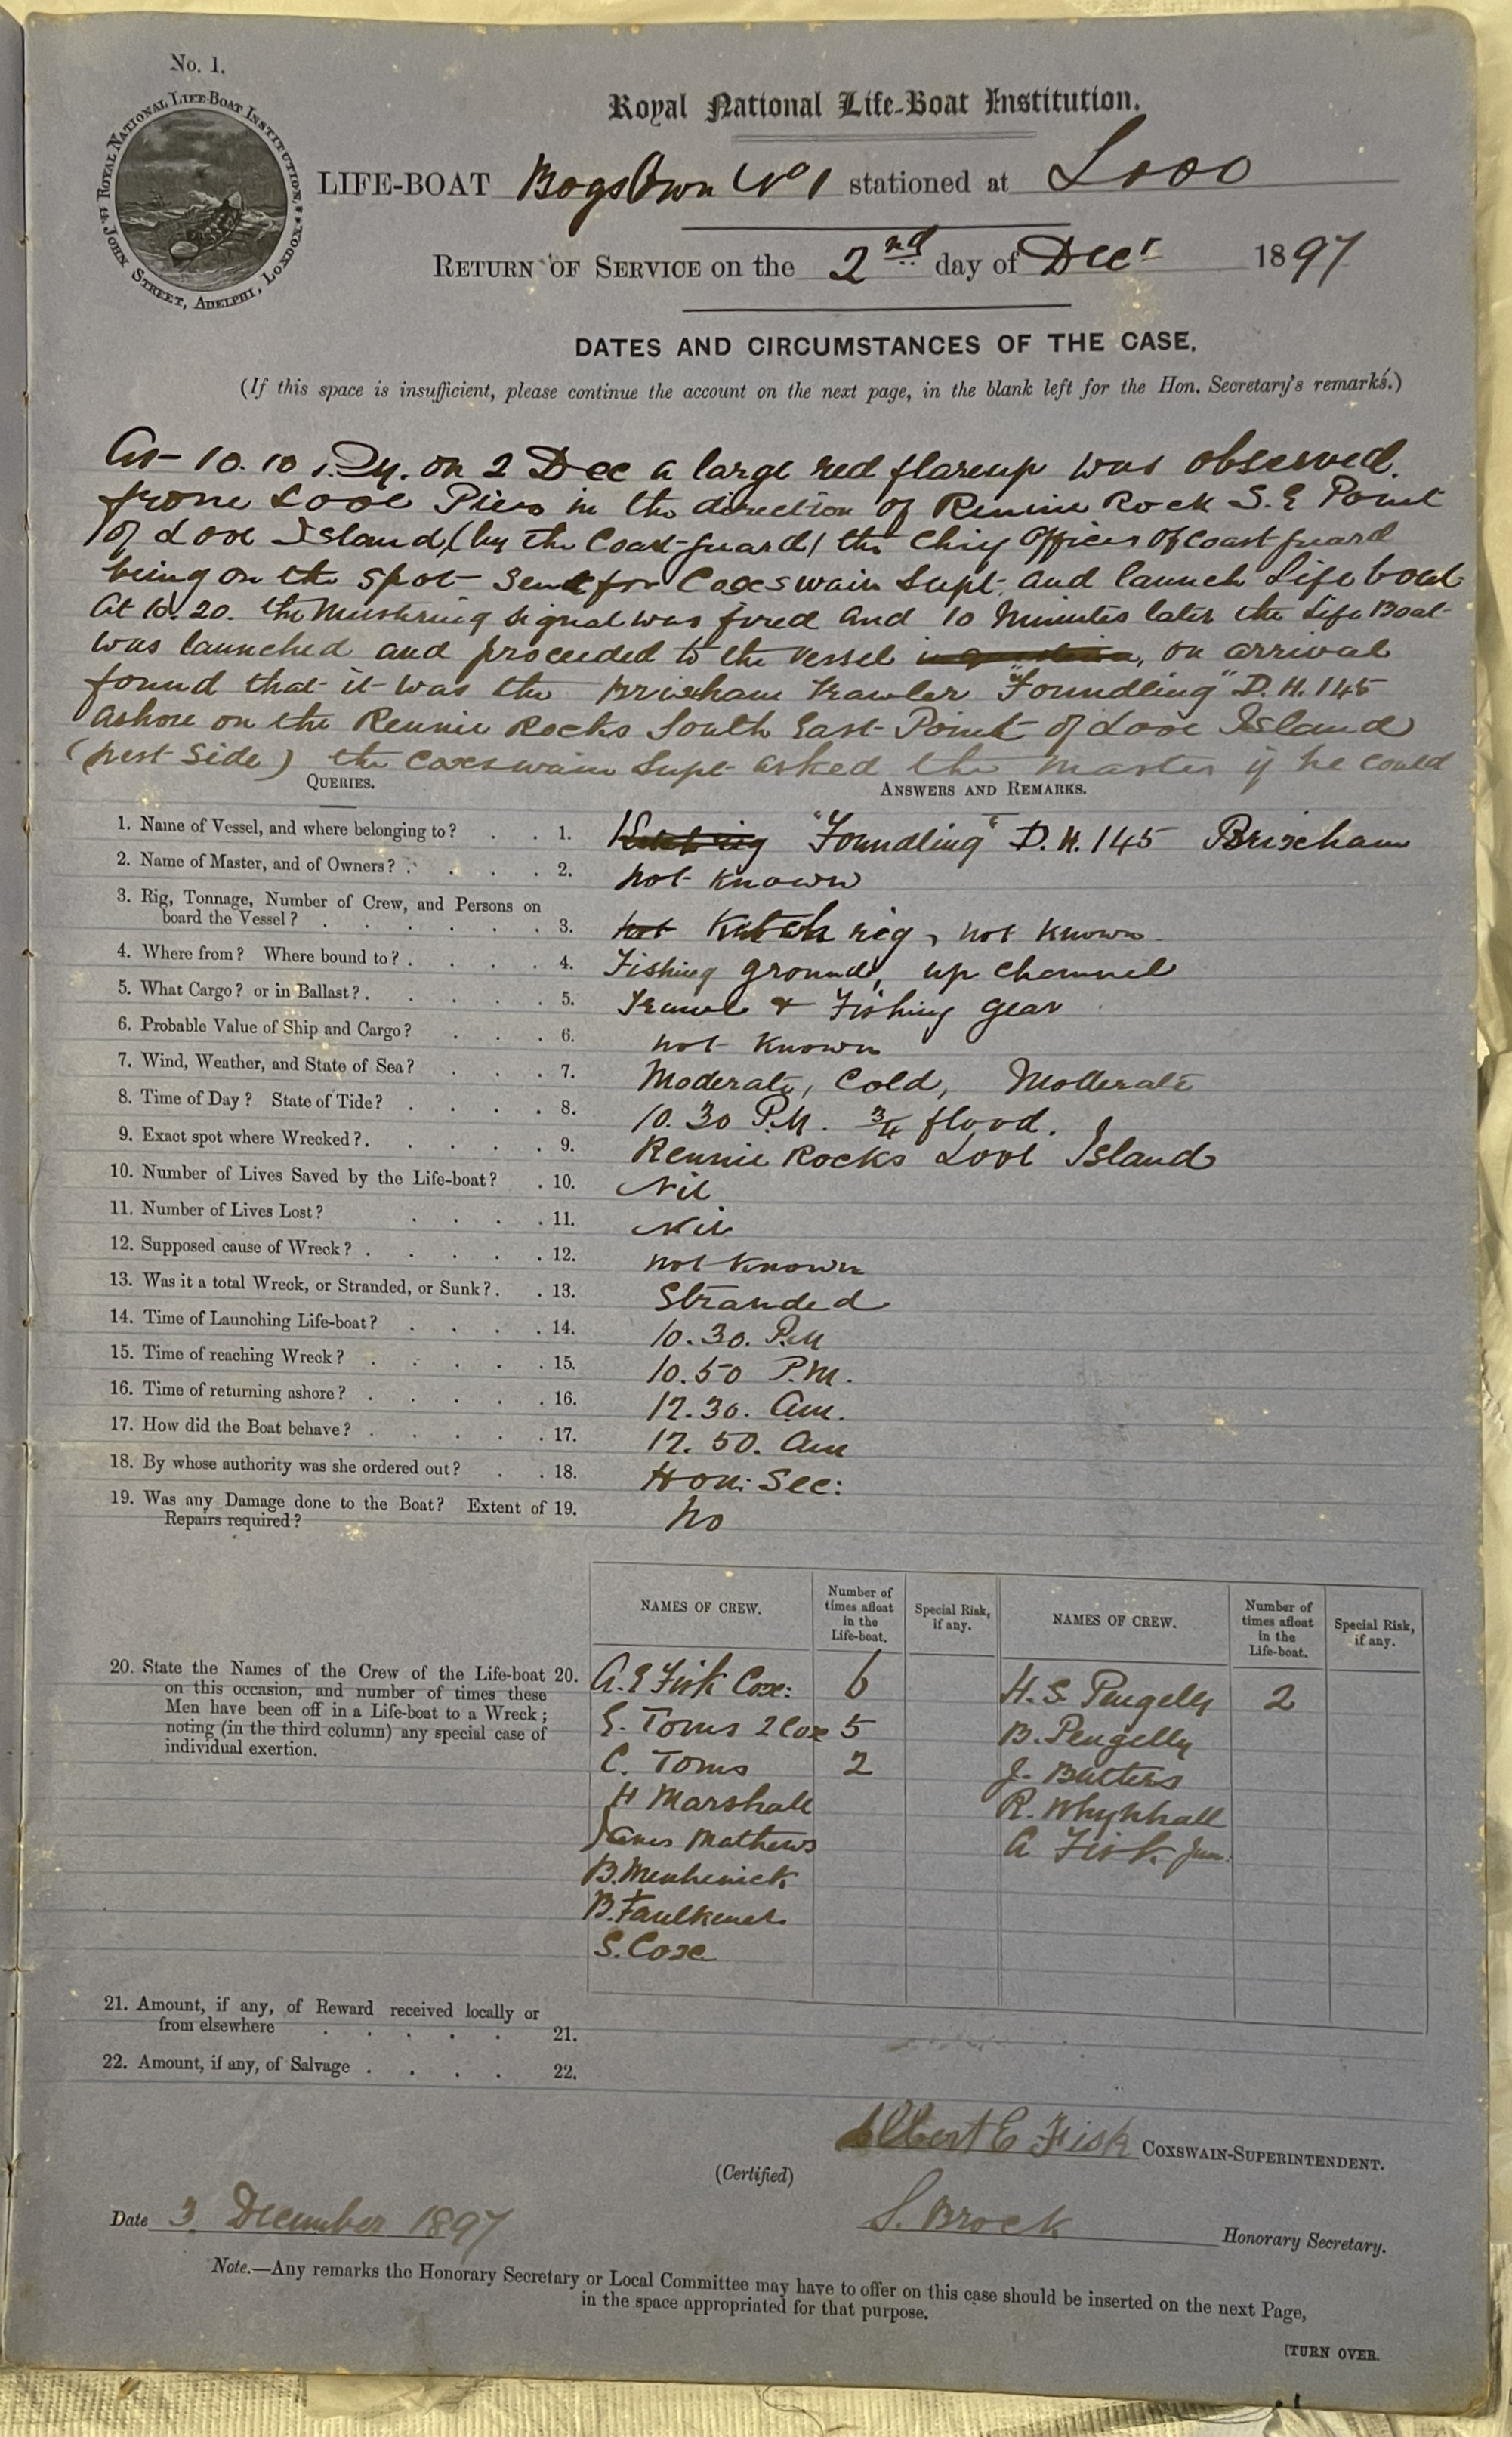 No. 1.
ROYAL NATIONAL LIFE-BOAT INSTITUTION, JOHN STREET, ADELPHI, LONDON
Royal National Life-Boat Institution.
LIFE-BOAT Boys Own No 1 stationed at Looe
RETURN OF SERVICE on the 2nd day of Decr 1897
DATES AND CIRCUMSTANCES OF THE CASE.
(If this space is insufficient, please continue the account on the next page, in the blank left for the Hon. Secretary's remarks.)
At 10.10 P.M. on 2 Dec a large red flareup was observed.
from Looe Pier in the direction of Rennie Rock S.E Point
of Looe Island (by the Coast-guard) the Chief Officer of Coast guard
being on the spot sent for Coxswain Supt. and launch Life boat
At 10.20. the Mustering signal was fired and 10 Minutes later the Life Boat
was launched and proceeded to the vessel, on arrival
found that it was the Brixham Trawler "Foundling" D.H. 145
ashore on the Rennie Rocks South East Point of Looe Island
(West Side) the Coxswain Supt asked the master if he could
QUERIES.
ANSWERS AND REMARKS.
1. Name of Vessel, and where belonging to? 1. "Foundling" D.H. 145 Brixham
2. Name of Master, and of Owners? 2. not known
3. Rig, Tonnage, Number of Crew, and Persons on
board the Vessel? 3. not Ketch rig, not known
4. Where from? Where bound to? 4. Fishing ground, up channel
5. What Cargo? or in Ballast? 5. Trawl & Fishing gear
6. Probable Value of Ship and Cargo? 6. not known
7. Wind, Weather, and State of Sea? 7. Moderate, Cold, Moderate
8. Time of Day? State of Tide? 8. 10.30 P.M. 3/4 flood.
9. Exact spot where Wrecked? 9. Rennie Rocks Looe Island
10. Number of Lives Saved by the Life-boat? 10. Nil
11. Number of Lives Lost? 11. Nil
12. Supposed cause of Wreck? 12. not known
13. Was it a total Wreck, or Stranded, or Sunk? 13. Stranded
14. Time of Launching Life-boat? 14. 10.30. P.M
15. Time of reaching Wreck? 15. 10.50 P.M.
16. Time of returning ashore? 16. 12.30. am.
17. How did the Boat behave? 17. 12.50. am
18. By whose authority was she ordered out? 18. Hon: Sec:
19. Was any Damage done to the Boat? Extent of 19. No
Repairs required?
NAMES OF CREW. Number of times afloat in the Life-boat. Special Risk, if any. NAMES OF CREW. Number of times afloat in the Life-boat. Special Risk, if any.
20. State the Names of the Crew of the Life-boat 20.
on this occasion, and number of times these
Men have been off in a Life-boat to a Wreck;
noting (in the third column) any special case of
individual exertion.
A.E Fisk Cox: 6 H.S. Pengelly 2
E. Toms 2 Cox 5 B. Pengelly
C. Toms 2 J. Butters
H Marshall R. Whynhall
James Mathews A Fisk Jun:
B. Menhenick
B. Faulkener
S. Cox
21. Amount, if any, of Reward received locally or
from elsewhere 21.
22. Amount, if any, of Salvage 22.
Albert E Fisk COXSWAIN-SUPERINTENDENT.
(Certified)
Date 3. December 1897 S. Brock Honorary Secretary.
Note.—Any remarks the Honorary Secretary or Local Committee may have to offer on this case should be inserted on the next Page,
in the space appropriated for that purpose.
[TURN OVER.